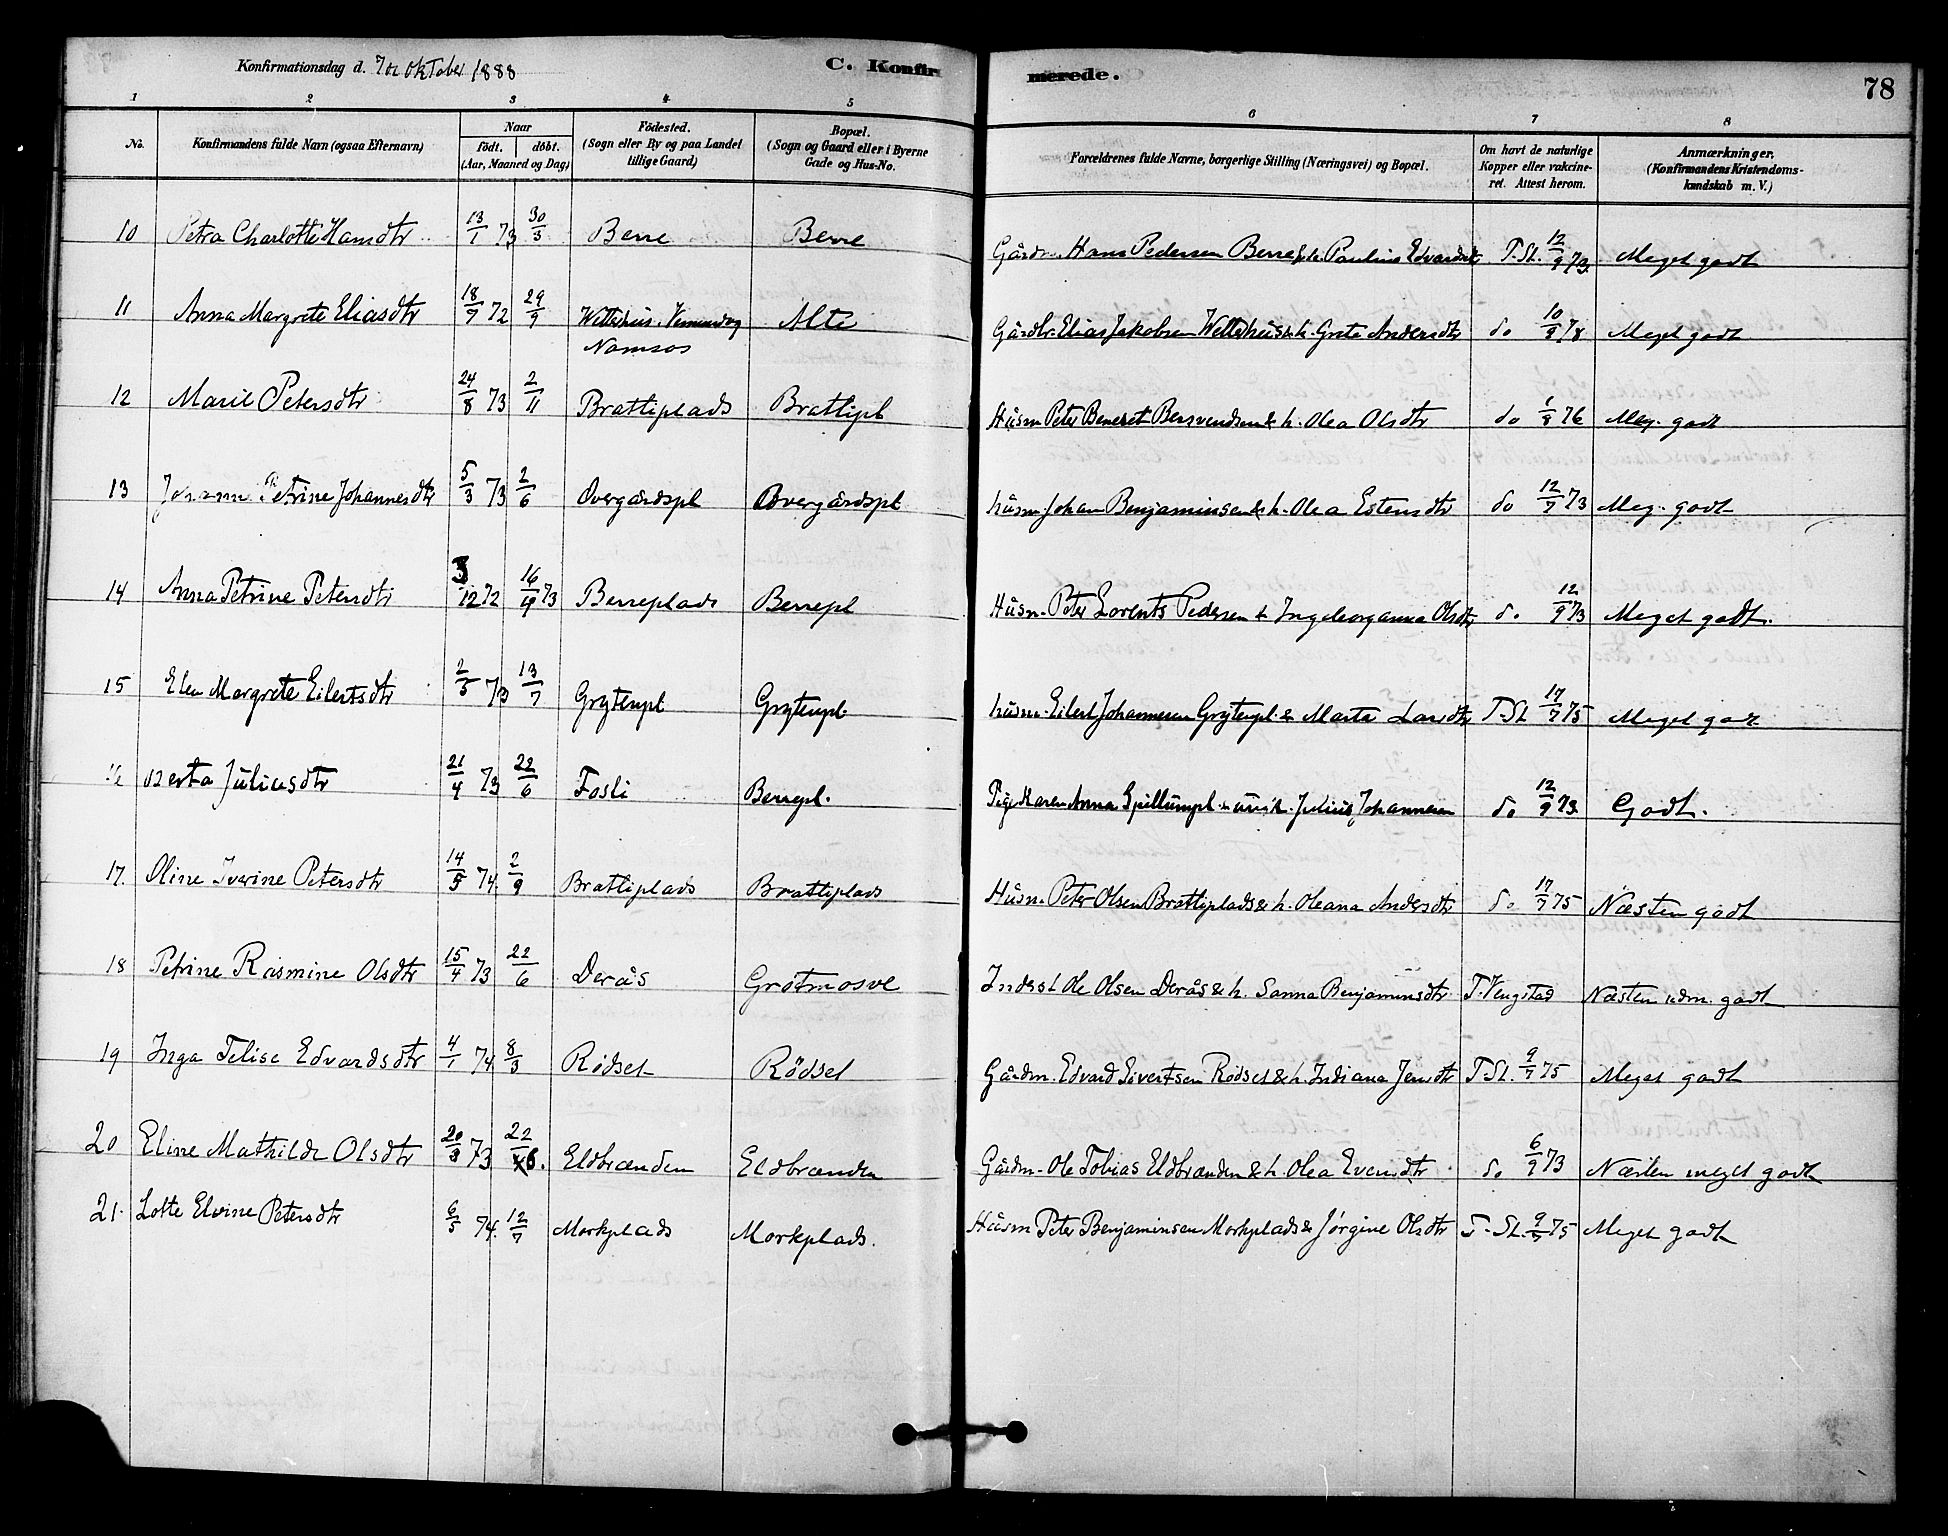 Konfirmationsdag d. 7de Oktober 1888 C. Konfirmerede. 78
1 2 3 4 5 6 7 8
No. Konfirmandens fulde Navn (ogsaa Efternavn) Naar født. døbt. (Aar, Maaned og Dag) Fødested. (Sogn eller By og paa Landet tillige Gaard) Bopæl. (Sogn og Gaard eller i Byerne Gade og Hus-No. Forældrenes fulde Navne, borgerlige Stilling (Næringsvei) og Bopæl. Om havt de naturlige Kopper eller vakcineret. Attest herom. Anmærkninger. (Konfirmandens Kristendomskundskab m. V.)
10 Petra Charlotte Hansdtr 13/1 73 30/3 Berre Berre Gårdm. Hans Pedersen Berre & h. Pauline Edvardsdtr T. St. 12/9 73 Meget godt
11 Anna Margrete Eliasdtr 18/7 72 29/9 Wettehus Vemundvig Namsos Alte Gårdbr. Elias Jakobsen Wettehus & h. Grete Andersdtr do 10/8 78 Meget godt
12 Marie Petersdtr 24/8 73 2/11 Brattiplads Brattipl Husm Peter Beneset Bersvendsen & h. Olea Olsdtr do 1/8 76 Meg. godt
13 Petrine Johannesdtr 5/3 73 2/6 Overgårdspl Overgårdspl husm Johan Benjaminsen & h. Olea Estensdtr do 12/7 73 Meg. godt
14 Anna Petrine Petersdtr 3/12 72 16/4 73 Berreplads Berrepl Husm. Peter Lorents Pedersen & Ingeborganna Olsdtr do 12/9 73 Meget godt.
15 Elen Margrete Eilertsdtr 2/5 73 13/7 Grytenpl Grytenpl. husm. Eilert Johannesen Grytenpl. & Marta Larsdtr T. St 17/7 75 Meget godt
16 Berta Juliusdtr 21/4 73 22/6 Fosli Berrepl. Pige Karen Anna Spillumpl. Julius Johannesen do 12/9 73 Godt.
17. Oline Iverine Petersdtr 14/5 74. 2/9 Brattiplads Brattiplads Husm. Peter Olsen Brattiplads & h. Oleana Andersdtr do 17/7 75 Næsten godt
18 Petrine Rasmine Olsdtr 15/4 73 22/6 Derås Grøtmosve Inderst Ole Olsen Derås & h. Sanna Benjaminsdtr T. Vengstad Næsten udm. godt
19 Inga Felise Edvardsdtr 4/1 74 8/3 Rødset Rødset Gårdm. Edvard Sivertsen Rødset & h. Indiana Jensdtr T. St. 9/7 75 Meget godt
20 Eline Mathilde Olsdtr 20/3 73 22/6. Eldbrænden Eldbrænden Gårdm. Ole Tobias Eldbrænden & h. Olea Evensdtr do 6/9 73 Næsten meget godt
21. Lotte Elvine Petersdtr 6/5 74. 12/7 Morkplads Morkplads. Husm Peter Benjaminsen Morkplads & Jørgine Olsdtr T. St. 9/7 75 Meget godt